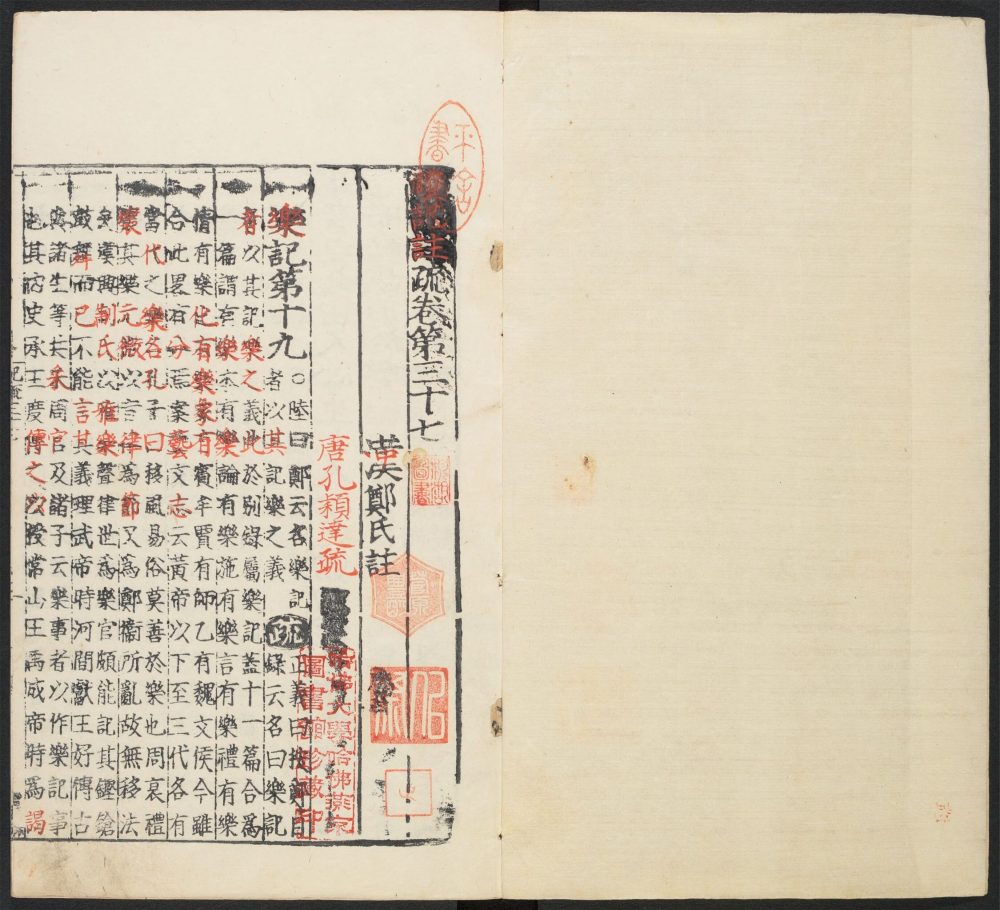 禮記註疏卷第三十七
漢鄭氏註
唐孔穎達疏
樂記第十九〇陸曰鄭云名樂記者以其記樂之義疏正義曰按鄭目錄云名曰樂記
者以其記樂之義此於別錄屬樂記蓋十一篇合爲
一篇謂有樂本有樂論有樂施有樂言有樂禮有樂
情有樂化有樂象有賓牟賈有師乙有魏文侯今雖
合此畧有分焉案藝文志云黃帝以下至三代各有
當代之樂名孔子曰移風易俗莫善於樂也周衰禮
壞其樂尤微以音律爲節又爲鄭衞所亂故無移法
矣漢興制氏以雅樂聲律世爲樂官頗能記其鏗鎗
鼓舞而已不能言其義理武帝時河間獻王好博古
與諸生等共采周官及諸子云樂事者以作樂記事
也其內史丞王度傳之以授常山王禹成帝時爲謁
哈佛大學哈佛燕京
圖書館珍藏印